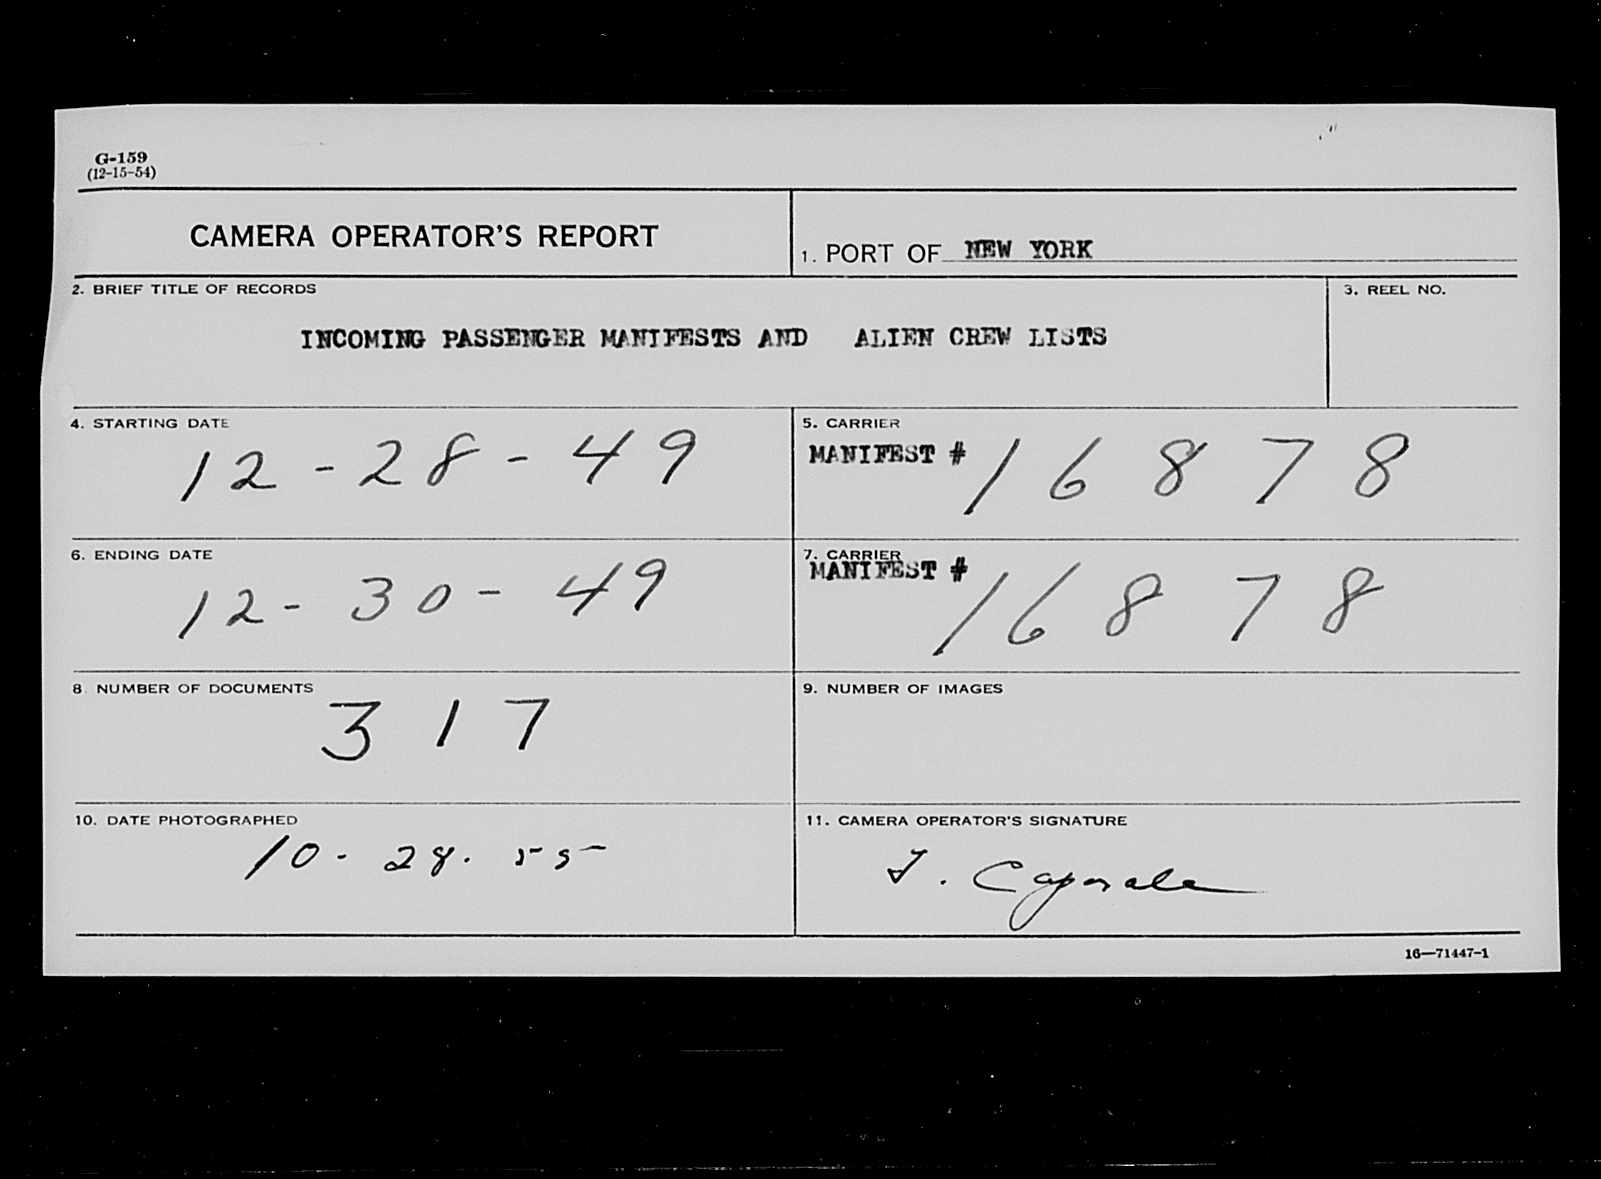 G-159
(12-15-54)
CAMERA OPERATOR'S REPORT
1. PORT OF NEW YORK
2. BRIEF TITLE OF RECORDS
3. REEL NO.
INCOMING PASSENGER MANIFESTS AND ALIEN CREW LISTS
4. STARTING DATE
12-28-49
5. CARRIER
MANIFEST # 16878
6. ENDING DATE
12-30-49
7. CARRIER
MANIFEST # 16878
8. NUMBER OF DOCUMENTS
317
9. NUMBER OF IMAGES
10. DATE PHOTOGRAPHED
10-28-55
11. CAMERA OPERATOR'S SIGNATURE
J. Caporale
16—71447-1